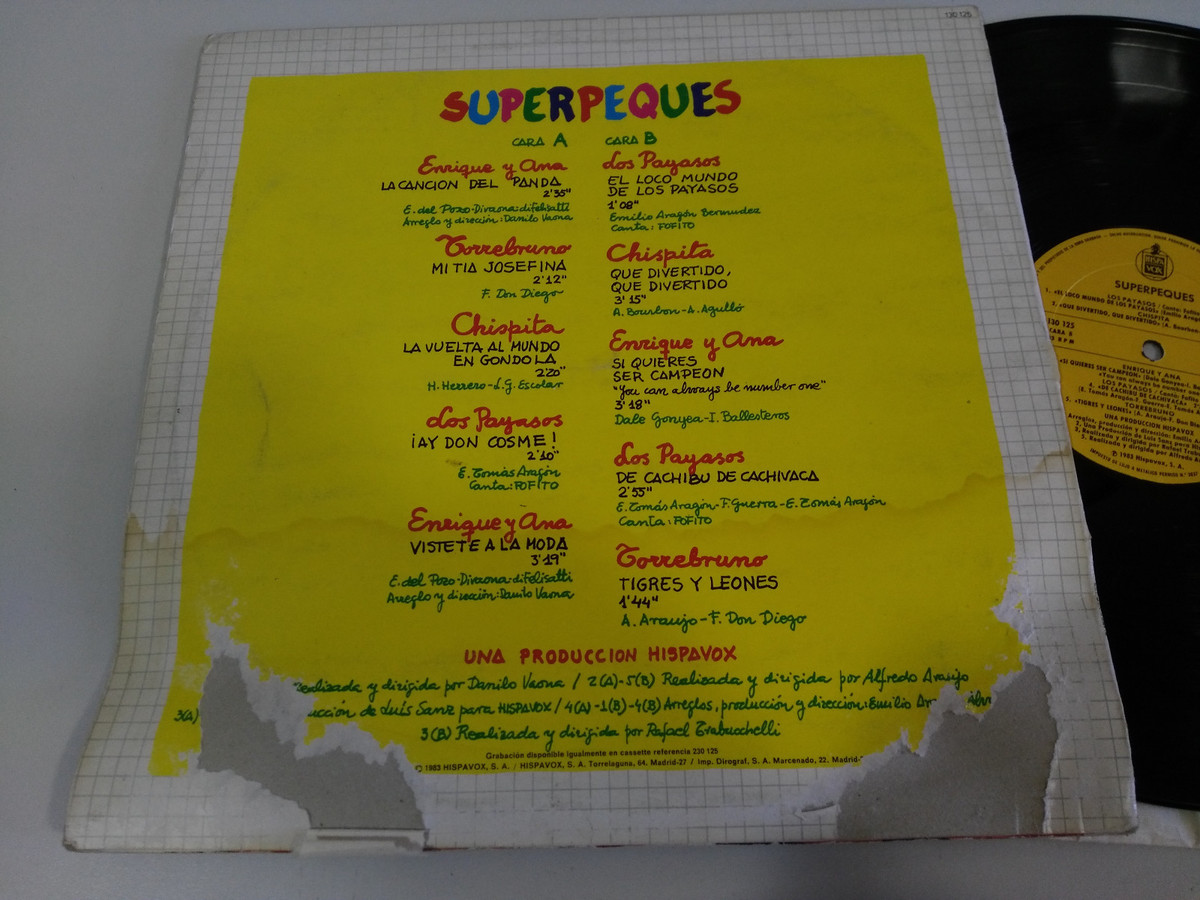 130 125
SUPERPEQUES
CARA A
Enrique y Ana
LA CANCION DEL PANDA
2'35"
E. del Pozo-Divaona-diFelisatti
Arreglo y dirección: Danilo Vaona
Torrebruno
MI TIA JOSEFINA
2'12"
F. Don Diego
Chispita
LA VUELTA AL MUNDO
EN GONDOLA
2'20"
H. Herrero-L.G. Escolar
Los Payasos
¡AY DON COSME!
2'10"
E. Tomás Aragón
Canta: FOFITO
Enrique y Ana
VISTETE A LA MODA
3'19"
E. del Pozo-Divaona-diFelisatti
Arreglo y dirección: Danilo Vaona
CARA B
Los Payasos
EL LOCO MUNDO
DE LOS PAYASOS
1'08"
Emilio Aragón Bermudez
Canta: FOFITO
Chispita
QUE DIVERTIDO,
QUE DIVERTIDO
3'15"
A. Bourbon-A. Agulló
Enrique y Ana
SI QUIERES
SER CAMPEON
"You can always be number one"
3'18"
Dale Gonyea-I. Ballesteros
Los Payasos
DE CACHIBU DE CACHIVACA
2'55"
E. Tomás Aragón-F. Guerra-E. Tomás Aragón
Canta: FOFITO
Torrebruno
TIGRES Y LEONES
1'44"
A. Araujo-F. Don Diego
UNA PRODUCCION HISPAVOX
Realizada y dirigida por Danilo Vaona / 2(A)-5(B) Realizada y dirigida por Alfredo Araujo
3(A) ucción de Luís Sanz para HISPAVOX / 4(A)-1(B)-4(B) Arreglos, producción y dirección: Emilio
3(B) Realizada y dirigida por Rafael Trabucchelli
Grabación disponible igualmente en cassette referencia 230 125
© 1983 HISPAVOX, S. A. / HISPAVOX, S. A. Torrelaguna, 64. Madrid-27 / Imp. Dirograf, S. A. Marcenado, 22. Madrid-
HISPA
VOX
SUPERPEQUES
LOS PAYASOS
1. «EL LOCO MUNDO DE LOS PAYASOS»
CHISPITA
2. «QUE DIVERTIDO, QUE DIVERTIDO»
130 125
CARA B
ENRIQUE Y ANA
«SI QUIERES SER CAMPEON»
LOS PAYASOS
4. «DE CACHIBU DE CACHIVACA»
TORREBRUNO
5. «TIGRES Y LEONES»
UNA PRODUCCION HISPAVOX
℗ 1983 Hispavox, S. A.